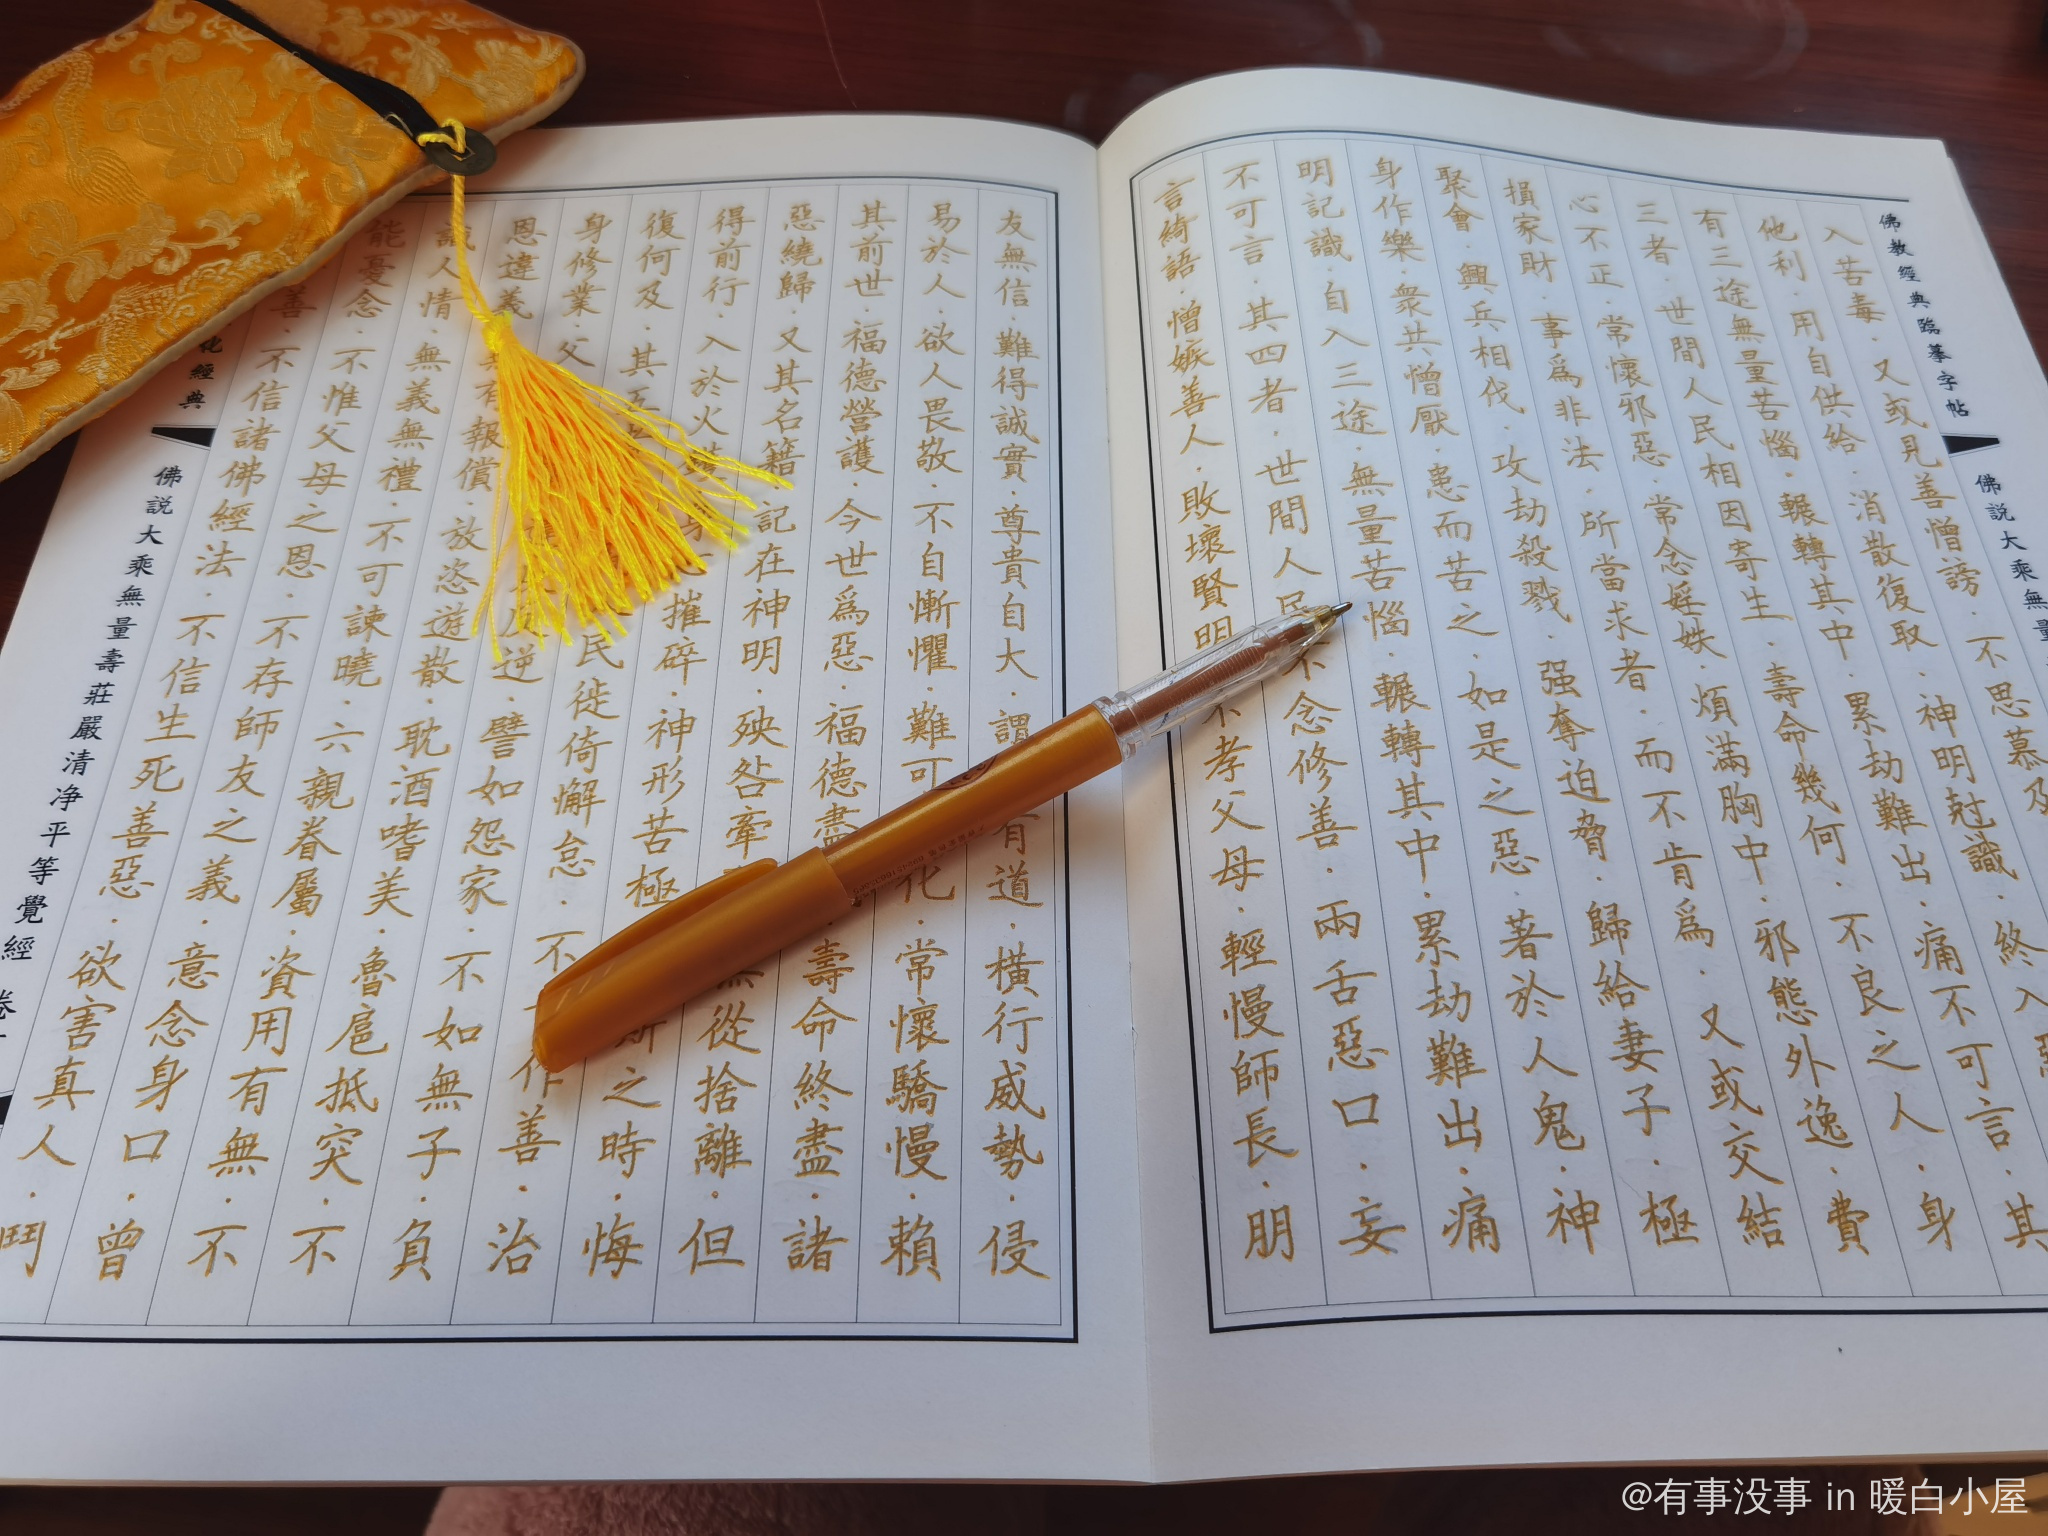 佛教經典臨摹字帖
佛説大乘無量
不思慕及
終入惡
其
入苦毒·又或見善憎謗·
神明尅識
痛不可言·
他利·用自供給·消散復取·
累劫難出·
身
有三途無量苦惱·輾轉其中·
壽命幾何·不良之人·
費
三者·世間人民相因寄生·
邪態外逸·
結
心不正·常懷邪惡·常念婬妷·煩滿胸中·
又或交
極
損家財·事爲非法·所當求者·而不肯爲·
歸給妻子·
神
聚會·興兵相伐·攻劫殺戮·强奪迫脅·
著於人鬼·
痛
身作樂·衆共憎厭·患而苦之·如是之惡·
明記識·自入三途·無量苦惱·輾轉其中·累劫難出·
不可言·其四者·世間人民不念修善·兩舌惡口·妄
言綺語·憎嫉善人·敗壞賢明·不孝父母·輕慢師長·朋
友無信·難得誠實·尊貴自大·謂有道·橫行威勢·侵
易於人·欲人畏敬·不自慚懼·難可化·常懷驕慢·賴
其前世·福德營護·今世爲惡·福德盡·壽命終盡·諸
惡繞歸·又其名籍·記在神明·殃咎牽·無從捨離·但
得前行·入於火·摧碎·神形苦極·斯之時·悔
復何及·其五
身修業·父
民徙倚懈怠·不作善·治
恩違義·有報償·反逆·譬如怨家·不如無子·負
識人情·無義無禮·不可諫曉·
放恣遊散·耽酒嗜美·魯扈抵突·不
能憂念·不惟父母之恩·不存師友之義·
六親眷屬·資用有無·不
善·不信諸佛經法·不信生死善惡·欲害真人·鬥
意念身口·曾
化經典
佛説大乘無量壽莊嚴清净平等覺經
@有事没事 in 暖白小屋